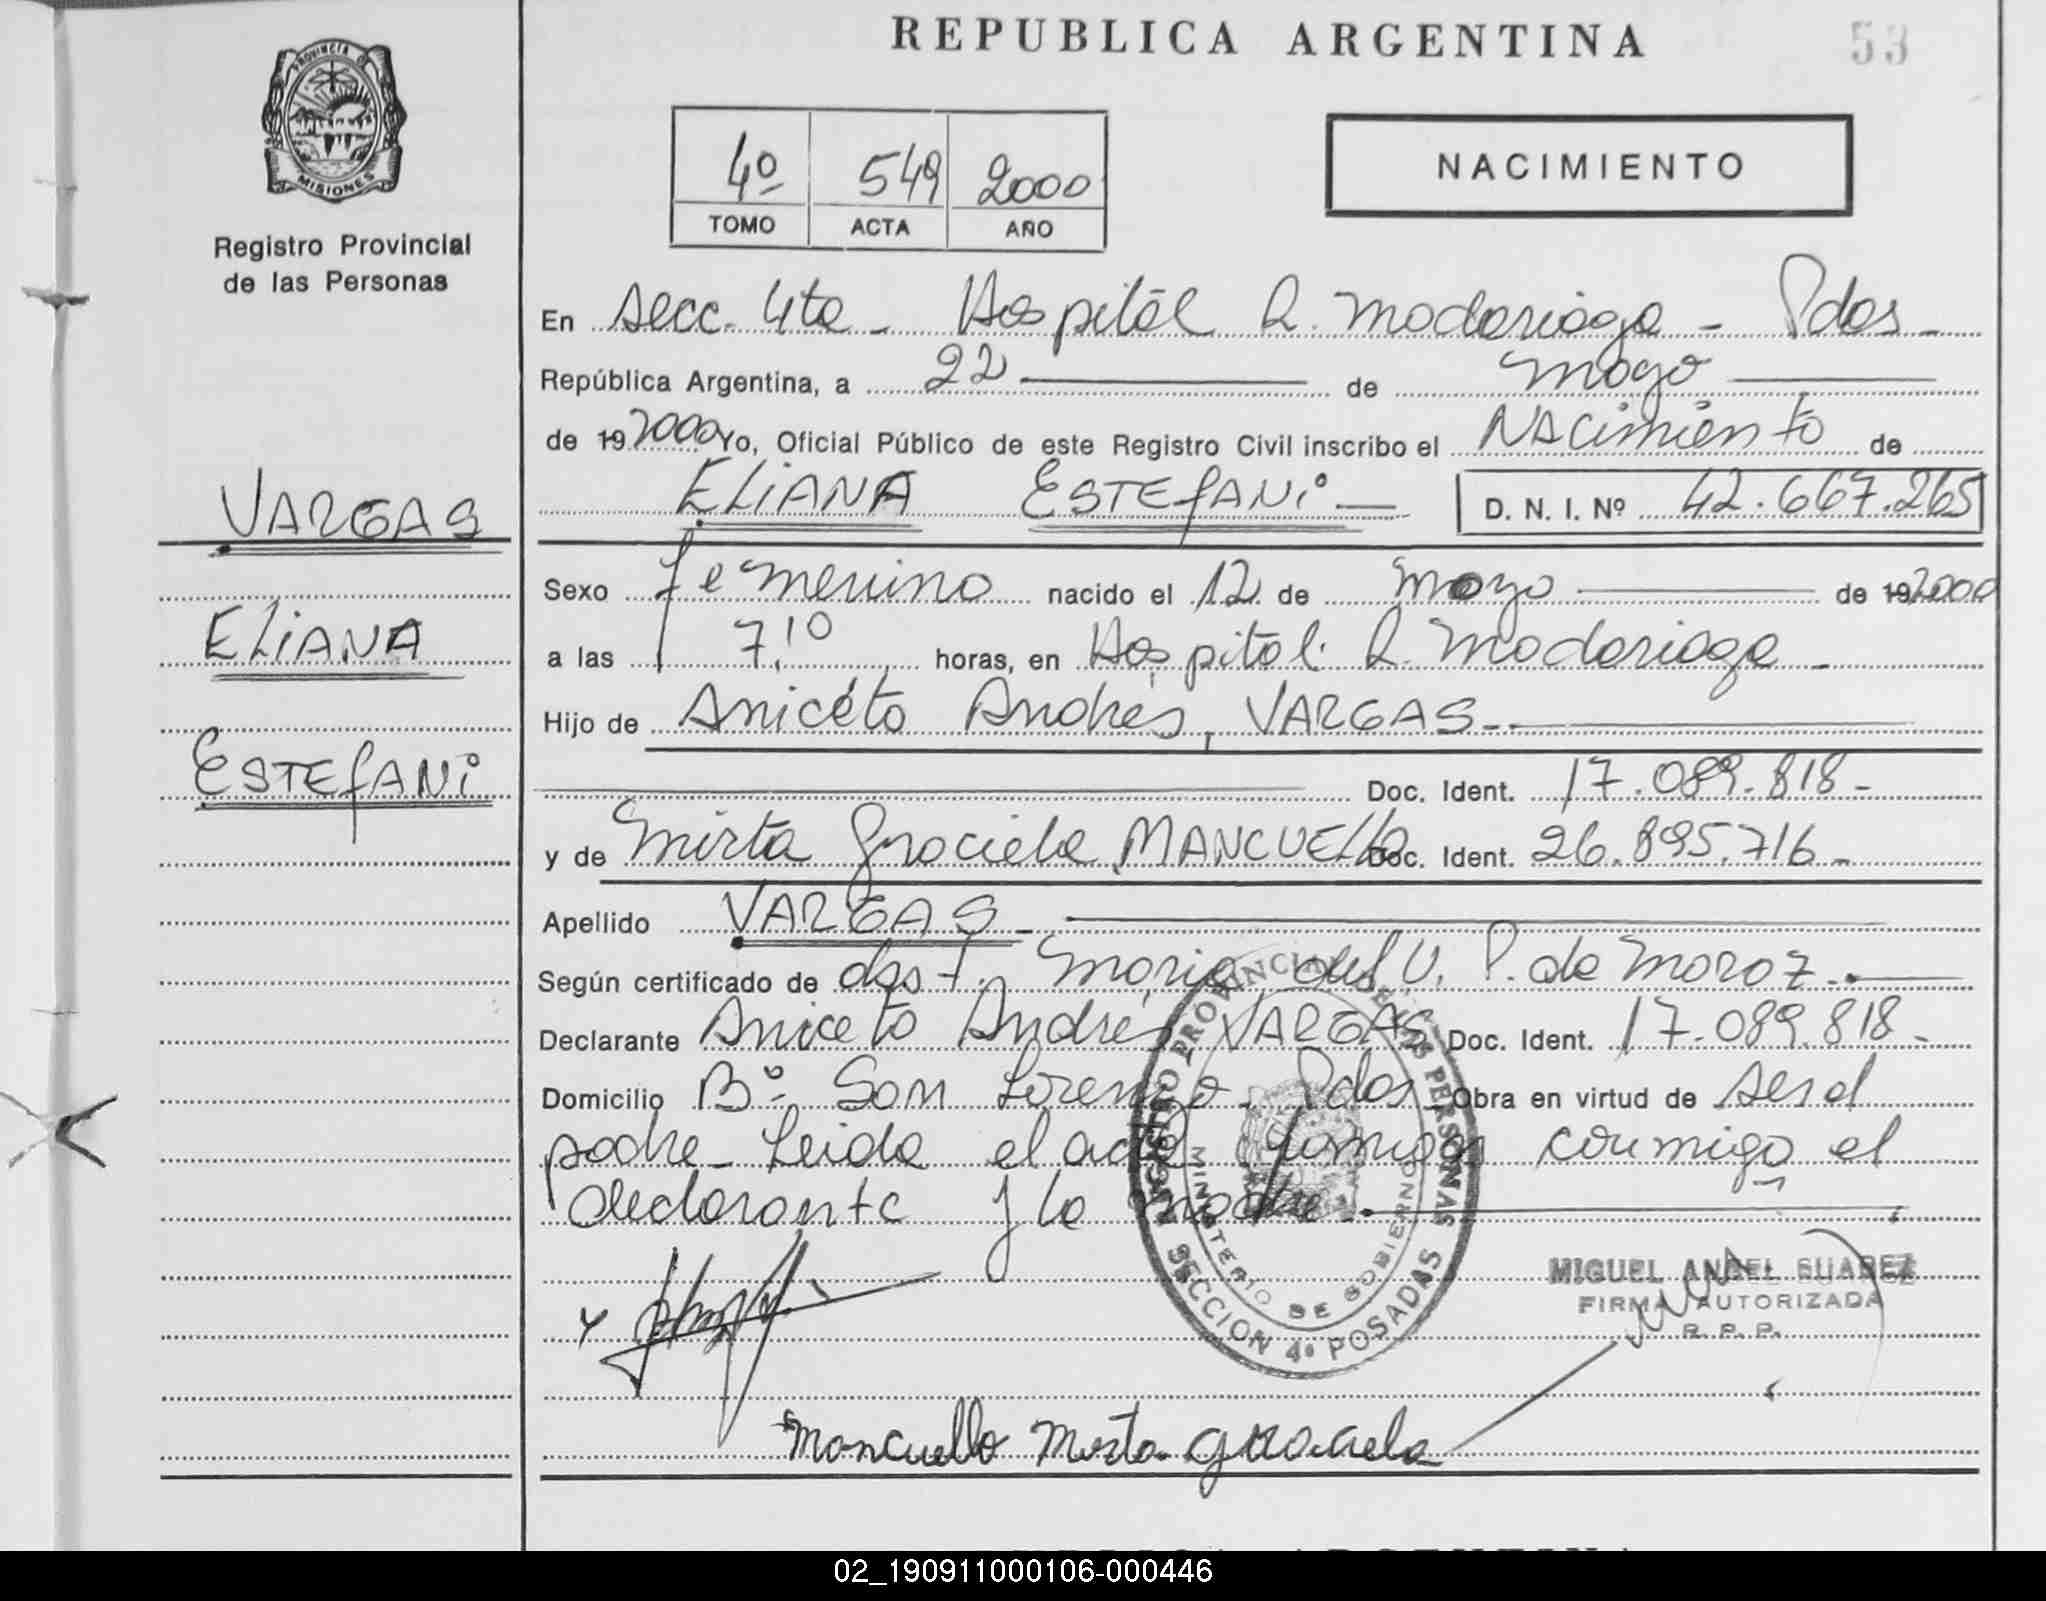 REPUBLICA ARGENTINA
53
PROVINCIA DE
MISIONES
Registro Provincial
de las Personas
4º 549 2000
TOMO ACTA AÑO
NACIMIENTO
En Secc. 4ta - Hospital R. Madariaga - Pdas -
República Argentina, a 22 de Mayo
de 19 2000 Yo, Oficial Público de este Registro Civil inscribo el NAcimiento de
ELiANA ESTEfANi D. N. I. Nº 42.667.265
VARGAS
ELiANA
ESTEfANi
Sexo femenino nacido el 12 de Mayo de 19 2000
a las 7,10 horas, en Hospital R. Madariaga -
Hijo de Aniceto Andrés, VARGAS -
Doc. Ident. 17.089.818 -
y de Mirta Graciela MANCUELLO Doc. Ident. 26.895.716 -
Apellido VARGAS -
Según certificado de obst. María del V. P. de Moroz -
Declarante Aniceto Andrés VARGAS Doc. Ident. 17.089.818 -
Domicilio Bº San Lorenzo - Pdas Obra en virtud de ser el
padre - Leida el acta firman conmigo el
declarante y la madre -
REGISTRO PROVINCIAL DE LAS PERSONAS
MINISTERIO DE GOBIERNO
SECCION 4º POSADAS
MIGUEL ANGEL SUAREZ
FIRMA AUTORIZADA
R. P. P.
Mancuello Mirta graciela
02_190911000106-000446